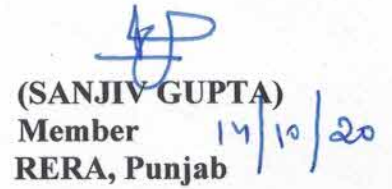 (SANJIV GUPTA)
Member 14/10/20
RERA, Punjab